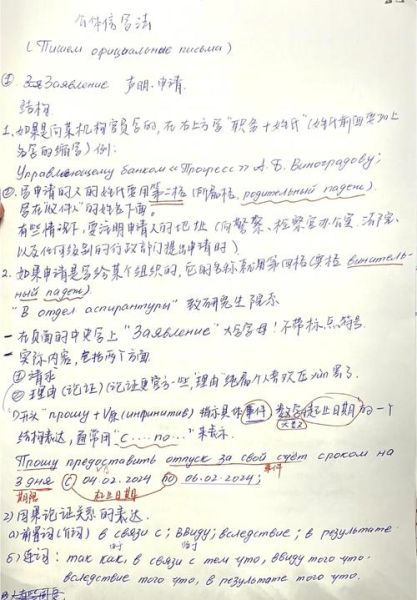 个体信写法
(Пишем официальные письма)
① Заявление 声明.申请
结构
1、如果是向某机构官员写的,在右上方写"职务+姓氏"(姓氏前面要加上
名字的缩写)例:
Управляющему банком «Прогресс» А. Б. Виноградову;
②写申请的人的姓氏要用第二格(所属格, родительный падеж).
写在"收件人"的姓名下面。
有些情况下,要注明申请人的地址(向警察、检察官办公室、法院、
以及任何级别的行政部门提出申请时)
2. 如果申请是写给某个组织的,它的名称就用第四格(宾格 винитель-
ный падеж).
"В отдел аспирантуры" 致研究生
- 在页面的中央写上 "Заявление" 大写字母!不带标点符号.
- 实际内容,包括两个方面
①请求
②理由(论证)(论证更官方一些,"理由"纯属个人喜欢
1)开头 "прошу + (инфинитив) 指示具体事件 数字 起止日期 的一个
结构表达,通常用 "с....по..." 来表示.
Прошу предоставить отпуск за свой счёт сроком на
事件
3 дня с 04.02.2024 по 06.02.2024;
期限 起止日期
2)因果论证关系的表达.
а)前置词(介词) в связи с; ввиду; вследствие; в результате
б)连词: так как, в связи с тем что, ввиду того что.
вследствие того что, в результате того что.